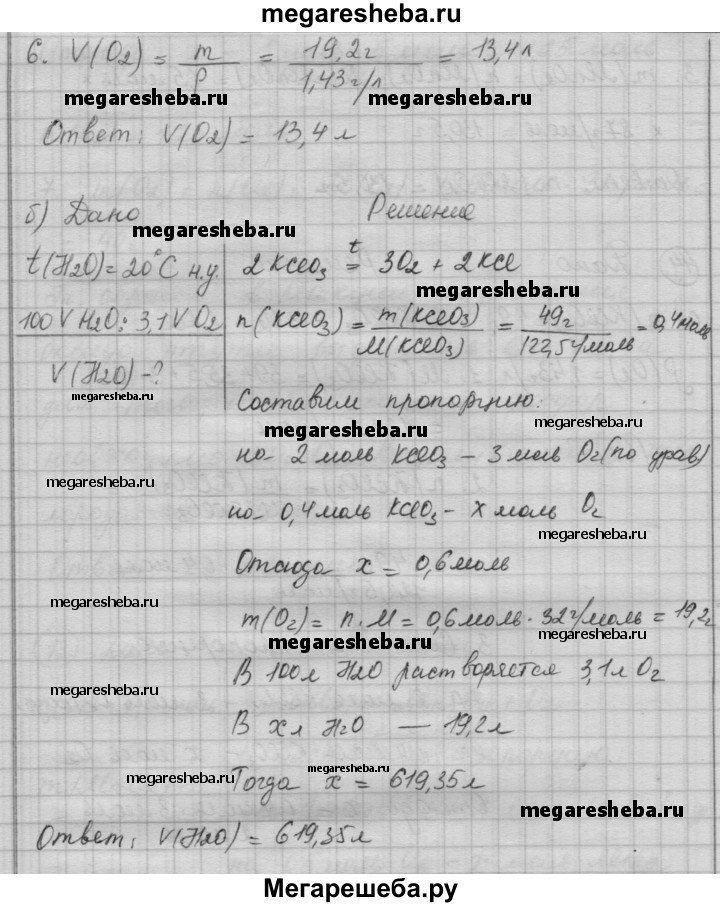 megaresheba.ru
6. V(O₂) = m/ρ = 19,2г/1,43г/л = 13,4л
megaresheba.ru megaresheba.ru
Ответ: V(O₂) = 13,4 л
б) Дано Решение
megaresheba.ru
t(H₂O)=20°C н.у. 2KClO₃ =(t) 3O₂ + 2KCl
megaresheba.ru
100 V H₂O : 3,1 V O₂ n(KClO₃) = m(KClO₃)/M(KClO₃) = 49г/122,5г/моль = 0,4 моль
V(H₂O) - ?
megaresheba.ru
Составим пропорцию:
megaresheba.ru megaresheba.ru
на 2 моль KClO₃ – 3 моль O₂ (по урав)
megaresheba.ru
на 0,4 моль KClO₃ – x моль O₂
megaresheba.ru
Отсюда x = 0,6 моль
megaresheba.ru
m(O₂) = n·M = 0,6 моль · 32 г/моль = 19,2г
megaresheba.ru megaresheba.ru
В 100л H₂O растворяется 3,1 л O₂
megaresheba.ru
В x л H₂O — 19,2 л
megaresheba.ru megaresheba.ru
Тогда x = 619,35 л
megaresheba.ru
Ответ: V(H₂O) = 619,35 л
Мегарешеба.ру